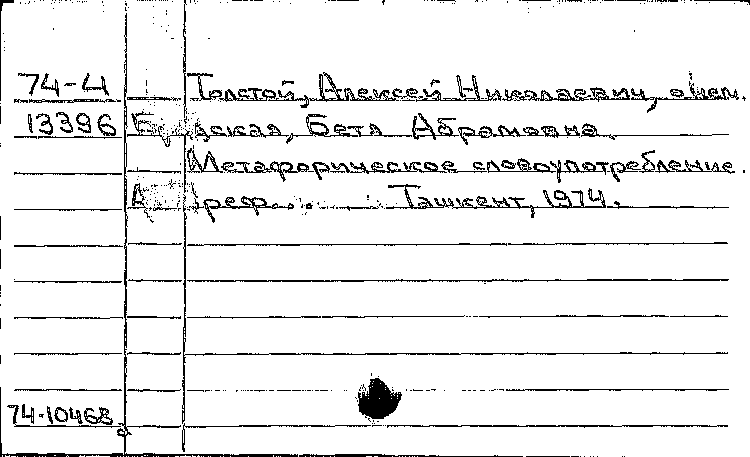 74-4 Толстой, Алексей Николаевич, о нем.
13396 Бетя Абрамовна.
Метафорическое словоупотребление.
Ташкент, 1974.
74-10468